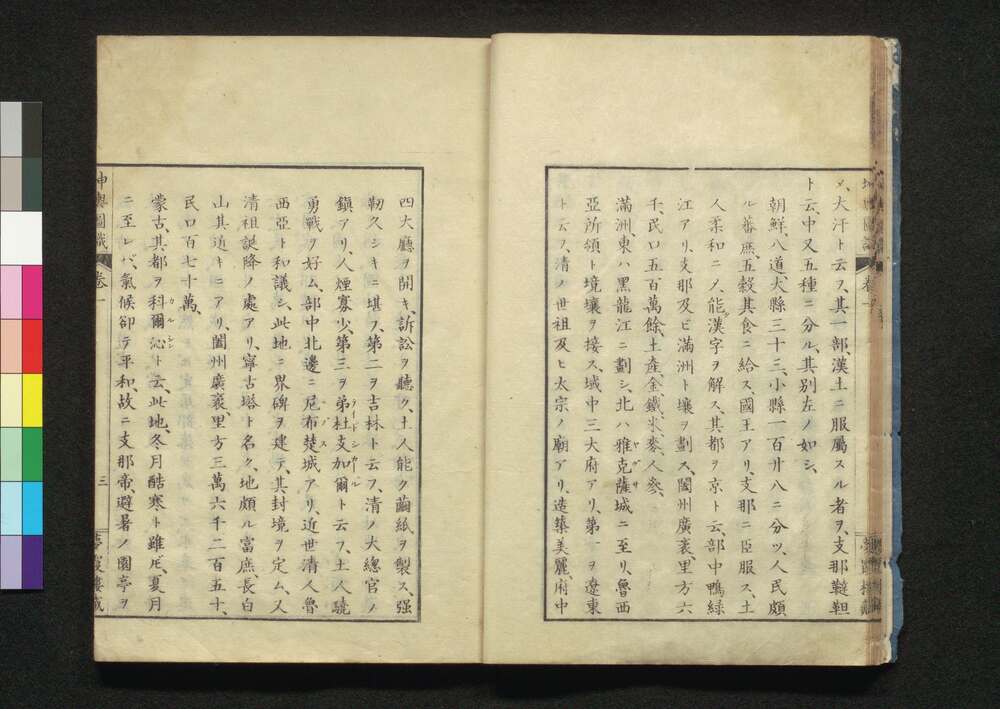 メ、大汗ト云フ、其一部、漢土ニ服屬スル者ヲ、支那韃靼
ト云、中又五種ニ分ル、其別左ノ如シ、
朝鮮八道、大縣三十三、小縣一百廿八ニ分ツ、人民頗
ル蕃庶、五穀其食ニ給ス國王アリ、支那ニ臣服ス、土
人柔和ニノ、能漢字ヲ解ス、其都ヲ京ト云、部中鴨緑
江アリ、支那及ビ滿洲ト壤ヲ劃ス、闔州廣袤、里方六
千、民口五百萬餘、土產、金、鐵、米、麥、人參、
滿洲、東ハ黑龍江ニ劃シ、北ハ雅克薩城ニ至リ、魯西
亞所領ト境壤ヲ接ス、域中三大府アリ、第一ヲ遼東
ト云フ、清ノ世祖及ヒ太宗ノ廟アリ、造築美麗府中
四大廳ヲ開キ、訴訟ヲ聽ク、土人能ク繭紙ヲ製ス、强
靭久シキニ堪フ、第二ヲ吉林ト云フ、清ノ大總官ノ
鎭アリ、人煙寡少、第三ヲ弟杜支加爾ト云フ、土人驍
勇戰ヲ好ム、部中北邊ニ尼布楚城アリ、近世清人魯
西亞ト和議シ、此地ニ界碑ヲ建テ、其封境ヲ定ム、又
清祖誕降ノ處アリ、寧古塔ト名ク、地頗ル富庶、長白
山其近キニアリ、闔州廣袤、里方三萬六千二百五十、
民口百七十萬、
蒙古、其都ヲ科爾沁ト云此地、冬月酷寒ト雖𪜈、夏月
ニ至レバ、氣候却テ平和、故ニ支那帝避暑ノ園亭ヲ
坤輿圖識 卷一 三